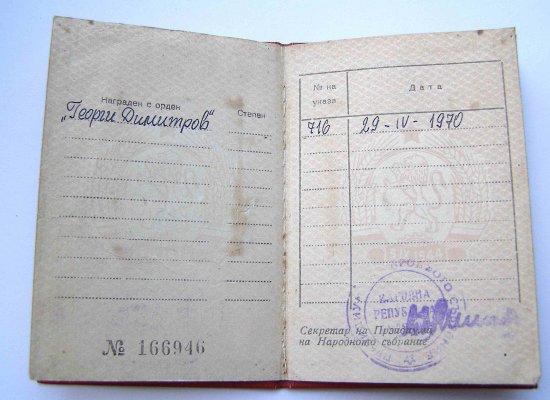 Награден с орден
Степен
„Георги Димитров"
№ 166946
№ на
указа
Дата
716
29-IV-1970
НАРОДНА
РЕПУБ
Секретар на Президиума
на Народното събрание